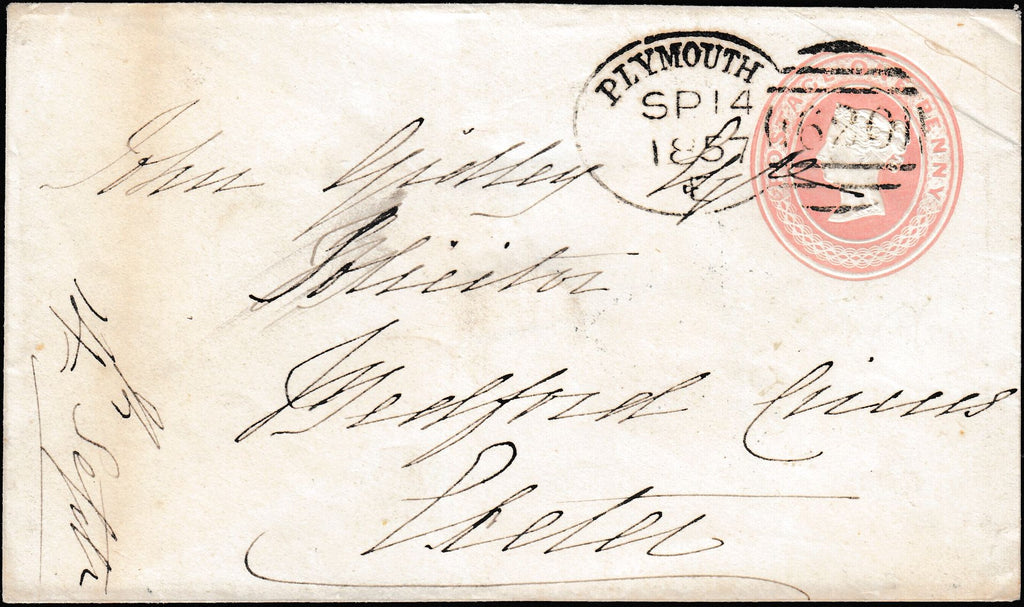 PLYMOUTH
SP 14
1857
4
620
POSTAGE ONE PENNY
John Gidley Esqre
Solicitor
Bedford Circus
Exeter
14th Septr